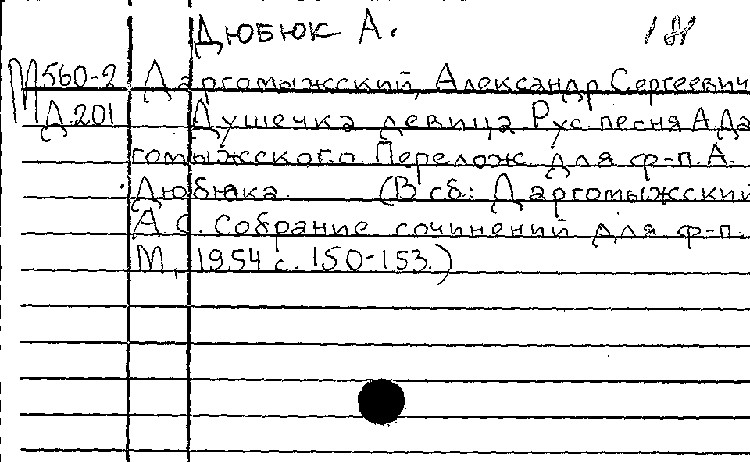 Дюбюк А.
М560-2 Даргомыжский, Александр Сергеевич
Д.201 Душечка девица. Рус. песня А. Да
гомыжского. Перелож. для ф-п. А.
Дюбюка. (В сб.: Даргомыжский
А. С. Собрание сочинений для ф-п.
М., 1954 с. 150-153.)